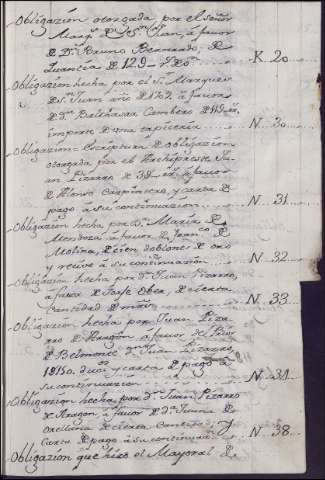 Obligazión otorgada por el señor
Marq.s de S.n Juan, à favor
de D.n Bruno Bernardo, de
quantia de 129
K. 20
Obligazión hecha por el S.r Marques
de S.n Juan año de 1762, à favor
de D.n Balthasar
importe de una tapizeria
N. 30
Obligazión = Escriptura de obligazion
otorgada por el Archipreste Ju-
an Pizarro de à favor
de Alonso Carpintero, y carta de
pago à su continuazion
N. 31
Obligazión hecha por D.a Maria de
Mendoza à favor de Fran.co de
Molina, de cien doblones de oro
y recivo à su continuazión
N. 32
Obligazión hecha por d.n Juan Pizarro,
à favor de de cierta
cantidad de mrs
N. 33
Obligazión hecha por Juan Piza-
rro de Aragón à favor del
de Belmonte d.n Juan Pizarro,
y carta de pago à
su continuazion
N. 34
Obligazion hecha por d.n Juan Pizarro
de Aragon à favor de d.n de
Orellana de cierta Cantid.d y
Carta de pago à su continuaz.n
N. 38
Obligazión que hizo el Mayoral de